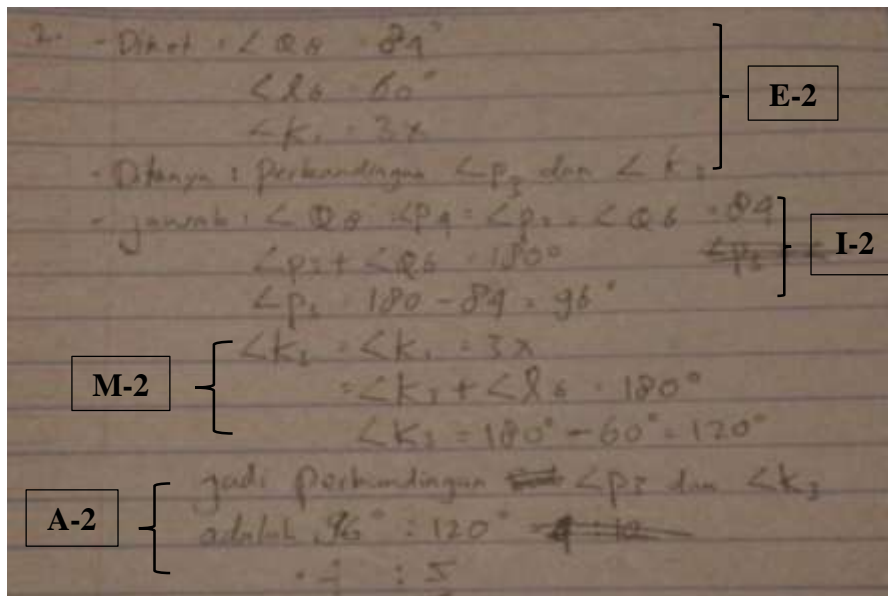 2. - Diket : ∠Q8 = 84°
∠l6 = 60°
∠k1 = 3x
E-2
- Ditanya : Perbandingan ∠p3 dan ∠k3
- jawab : ∠Q8 = ∠p4 = ∠p2 = ∠Q6 = 84
I-2
∠p3 + ∠Q6 = 180°
∠p3 = 180 - 84 = 96°
∠k3 = ∠k1 = 3x
M-2
= ∠k3 + ∠l6 = 180°
∠k3 = 180° - 60° = 120°
jadi perbandingan ∠p3 dan ∠k3
A-2
adalah 96° : 120°
: 5